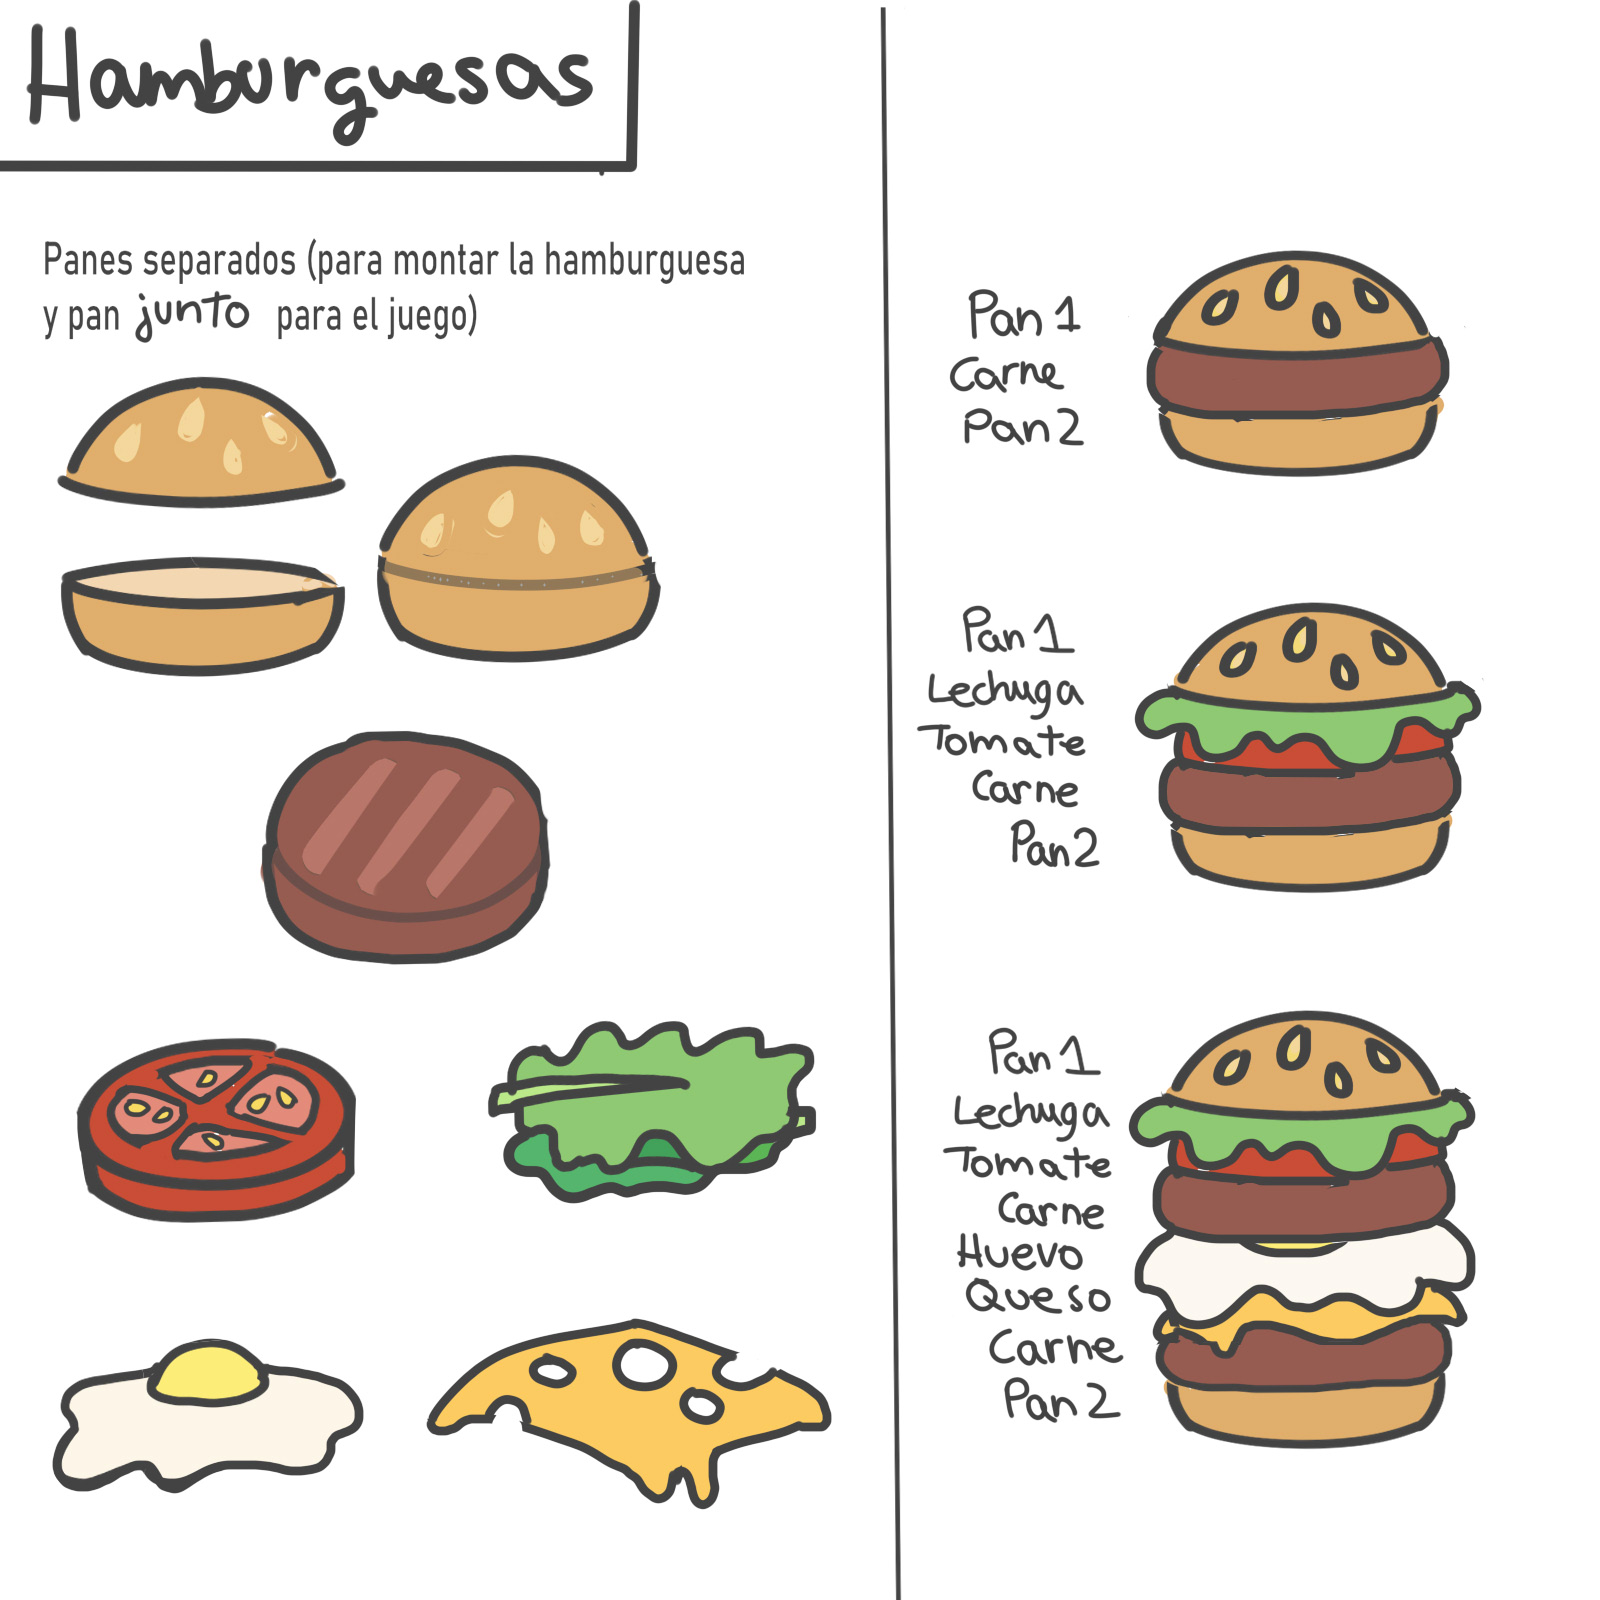 Hamburguesas
Panes separados (para montar la hamburguesa
y pan junto para el juego)
Pan 1
Carne
Pan 2
Pan 1
Lechuga
Tomate
Carne
Pan 2
Pan 1
Lechuga
Tomate
Carne
Huevo
Queso
Carne
Pan 2